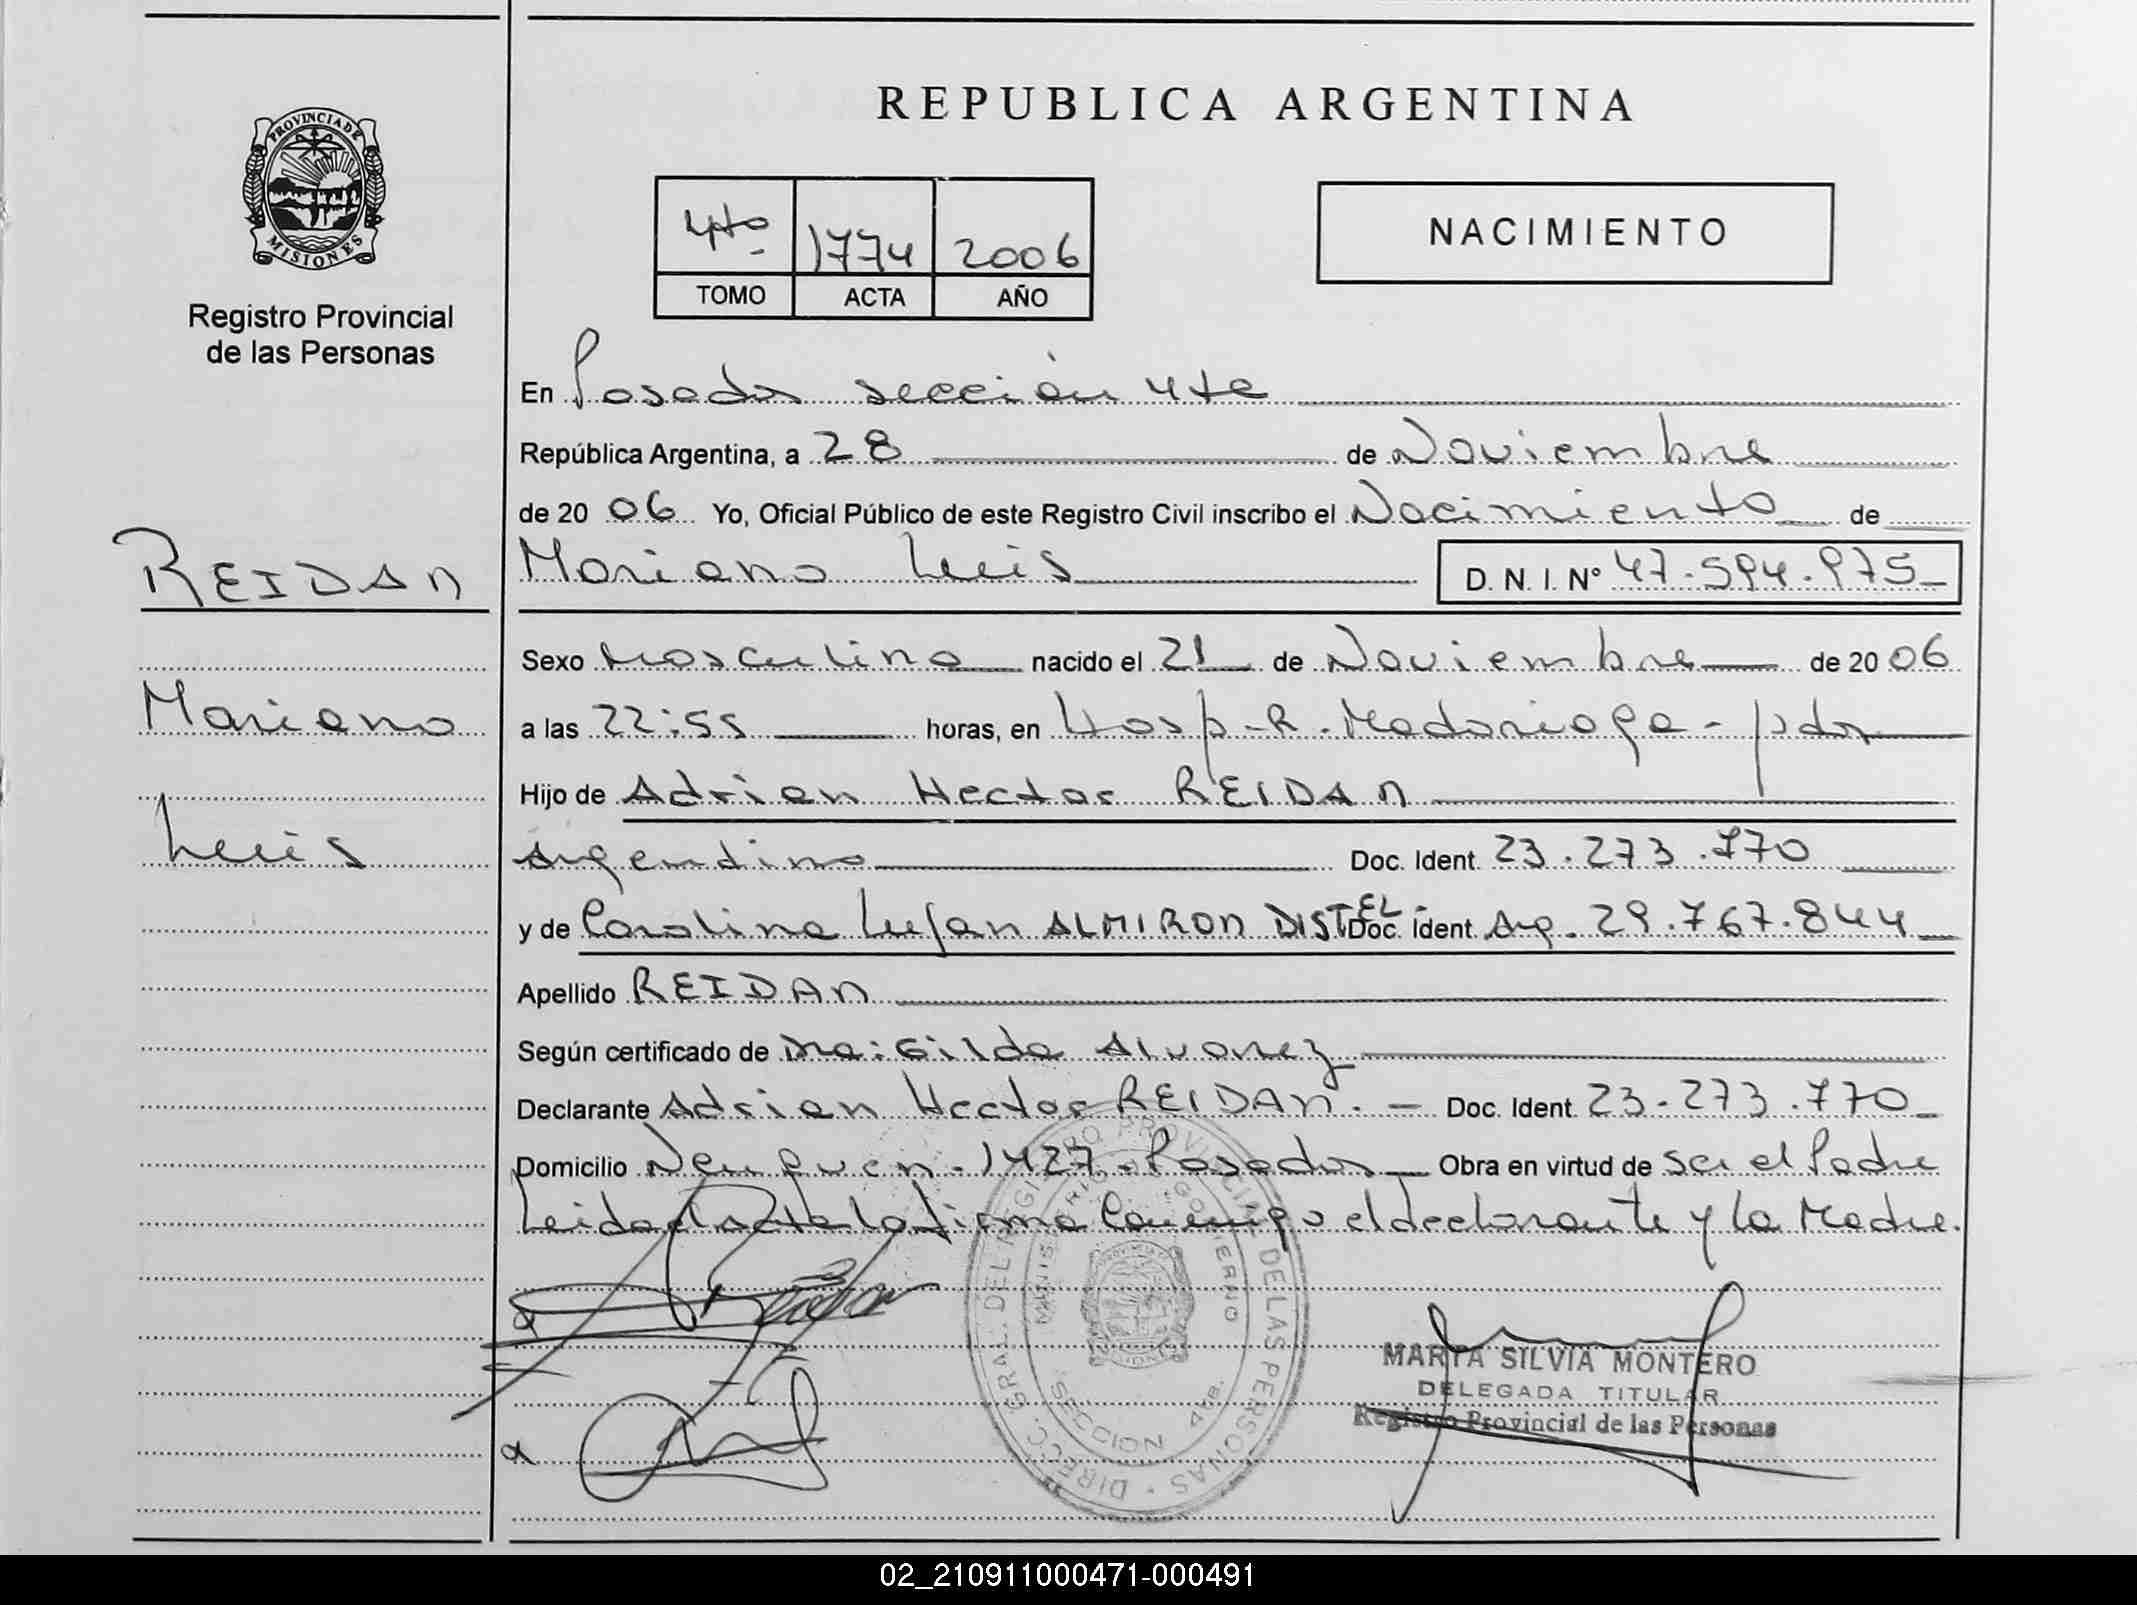 REPUBLICA ARGENTINA
PROVINCIA DE
MISIONES
Registro Provincial
de las Personas
4to 1774 2006
TOMO ACTA AÑO
NACIMIENTO
En Posadas sección 4ta
República Argentina, a 28 de Noviembre
de 2006 Yo, Oficial Público de este Registro Civil inscribo el Nacimiento de
REIDAN
Mariano Luis D. N. I. Nº 47.594.975
Sexo Masculino nacido el 21 de Noviembre de 2006
Mariano
a las 22:55 horas, en Hosp-R.Madariaga - pdas
Hijo de Adrian Hector REIDAN
Luis
Argentino Doc. Ident. 23.273.770
y de Carolina Lujan ALMIRON DISTEL Doc. Ident. Arg. 29.767.844
Apellido REIDAN
Según certificado de Dra: Gilda Alvarez
Declarante Adrian Hector REIDAN. - Doc. Ident. 23.273.770
Domicilio Neuquen. 1427. Posadas Obra en virtud de ser el Padre
Leida el acta la firma Conmigo el declarante y la Madre.
DIRECC. GRAL. DEL REGISTRO PROVINCIAL DE LAS PERSONAS
GOBIERNO
SECCION 4ta.
MARTA SILVIA MONTERO
DELEGADA TITULAR
Registro Provincial de las Personas
02_210911000471-000491